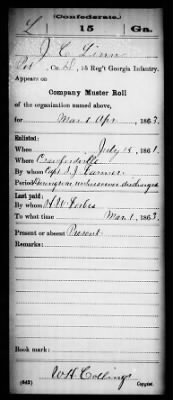 (Confederate.)
L 15 Ga.
J. C. Linn
Pvt, Co. D, 15 Reg't Georgia Infantry.
Appears on
Company Muster Roll
of the organization named above,
for Mar 1 Apr , 1863.
Enlisted:
When July 15, 1861.
Where Crawfordville
By whom Capt S. J. Farmer
Period During war unless sooner discharged
Last paid:
By whom H. W. Forbes
To what time Mar 1, 1863.
Present or absent Present
Remarks:
Book mark:
W. H. Collings
(642) Copyist.